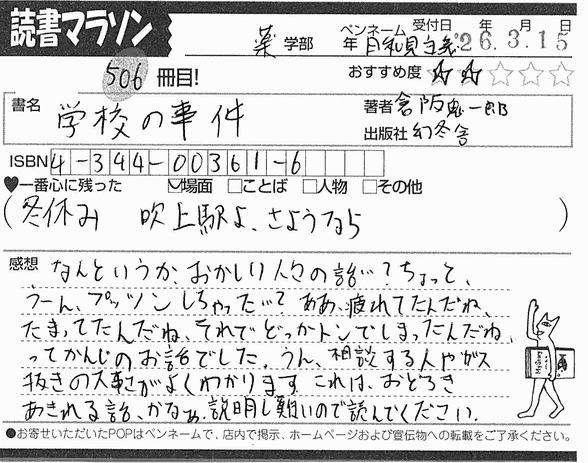 読書マラソン
薬 学部 年 ペンネーム 受付日 '26年3月15日
506 冊目! おすすめ度 ★★☆☆☆
書名 学校の事件
著者 倉阪鬼一郎
出版社 幻冬舎
ISBN 4-344-00361-6
♥一番心に残った ☑場面 □ことば □人物 □その他
(冬休み 吹上駅よ、さようなら)
感想 なんというか、おかしい人々の話…?ちょっと、
うーん、プッツンしちゃった…?ああ、疲れてたんだね、
たまってたんだね、それでどっかトンでしまったんだね、
ってかんじのお話でした。うん、相談する人やガス
抜きの大事さがよくわかります。これは、おどろき
あきれる話、かなぁ。説明し難いので読んでください。
●お寄せいただいたPOPはペンネームで、店内で掲示、ホームページおよび宣伝物への転載をご了承ください。